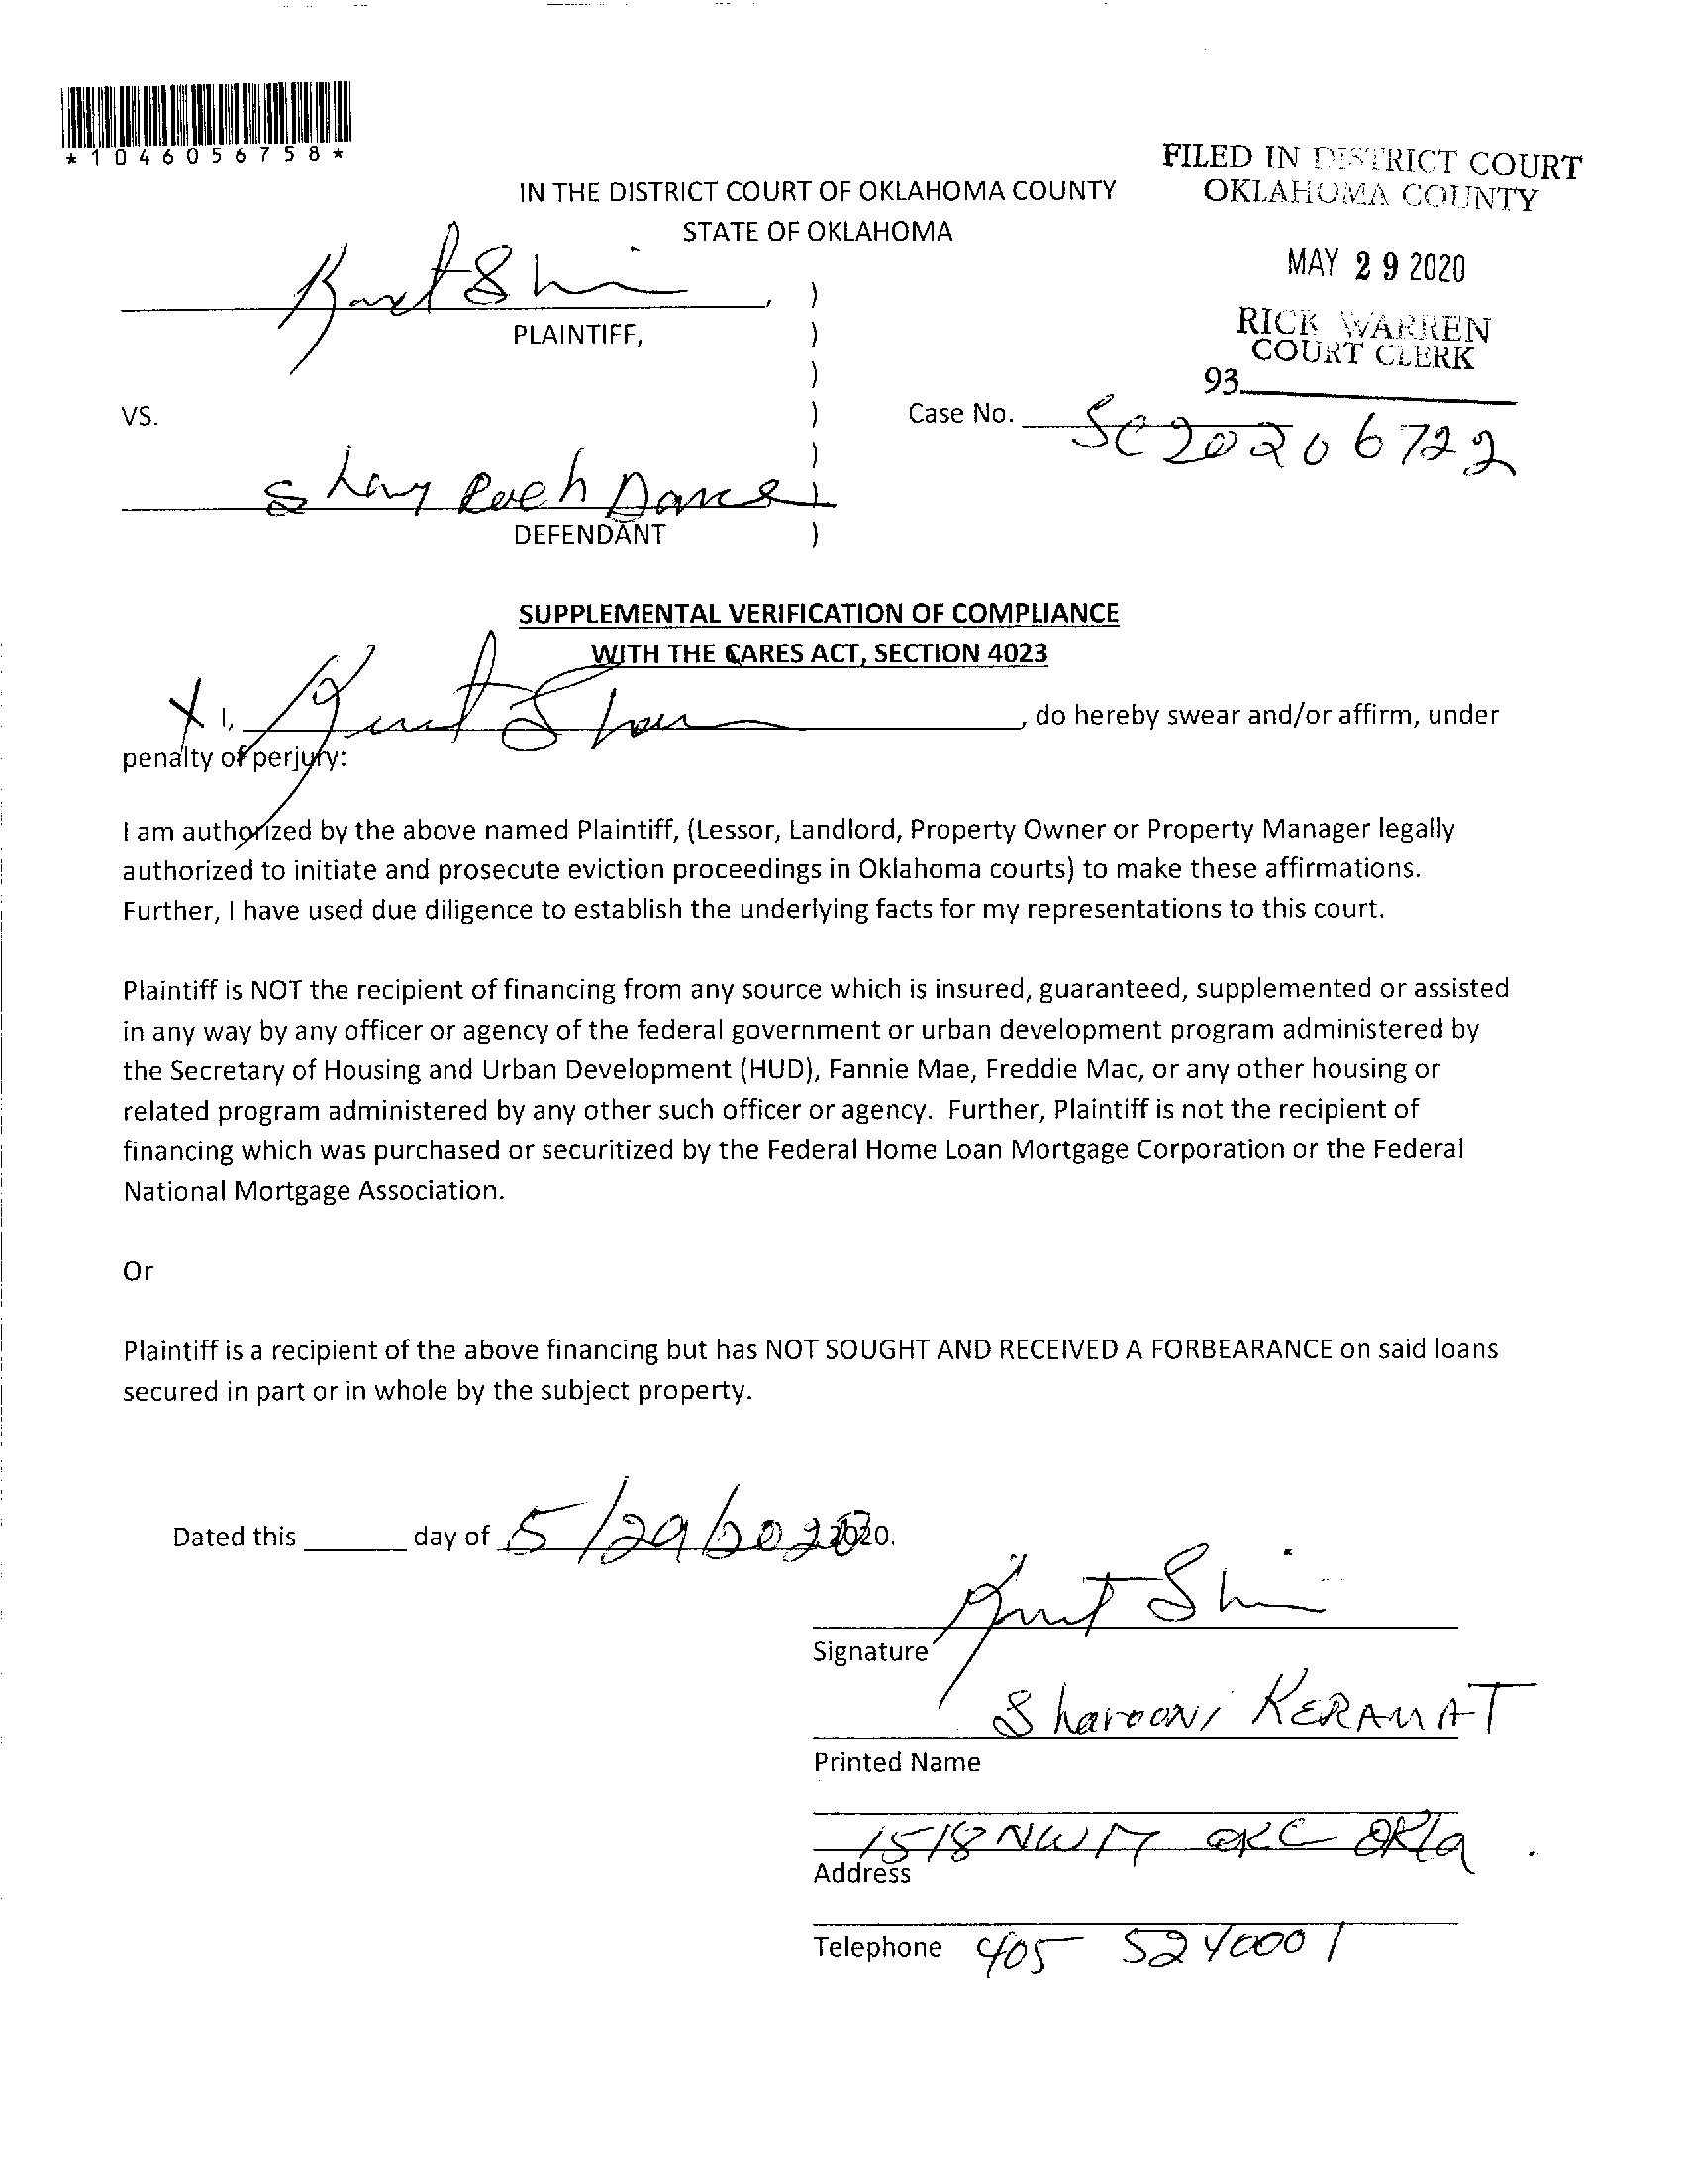 *1046056758*
FILED IN DISTRICT COURT
OKLAHOMA COUNTY
IN THE DISTRICT COURT OF OKLAHOMA COUNTY
STATE OF OKLAHOMA
MAY 29 2020
RICK WARREN
COURT CLERK
93
PLAINTIFF,
VS.
Case No. SC20206722
Shay
DEFENDANT
)
)
)
)
)
)
)
SUPPLEMENTAL VERIFICATION OF COMPLIANCE
WITH THE CARES ACT, SECTION 4023
X I, , do hereby swear and/or affirm, under
penalty of perjury:
I am authorized by the above named Plaintiff, (Lessor, Landlord, Property Owner or Property Manager legally
authorized to initiate and prosecute eviction proceedings in Oklahoma courts) to make these affirmations.
Further, I have used due diligence to establish the underlying facts for my representations to this court.
Plaintiff is NOT the recipient of financing from any source which is insured, guaranteed, supplemented or assisted
in any way by any officer or agency of the federal government or urban development program administered by
the Secretary of Housing and Urban Development (HUD), Fannie Mae, Freddie Mac, or any other housing or
related program administered by any other such officer or agency. Further, Plaintiff is not the recipient of
financing which was purchased or securitized by the Federal Home Loan Mortgage Corporation or the Federal
National Mortgage Association.
Or
Plaintiff is a recipient of the above financing but has NOT SOUGHT AND RECEIVED A FORBEARANCE on said loans
secured in part or in whole by the subject property.
Dated this ______ day of 5/29/2020 2020.
Signature
Sharooni KERAMAT
Printed Name
1518 NW 17 OKC OKla.
Address
Telephone 405 5240001